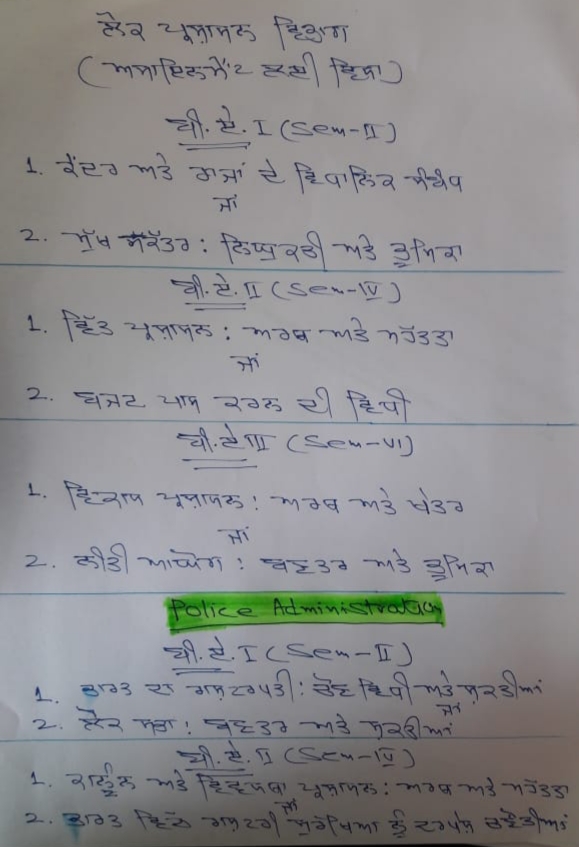 ਲੋਕ ਪ੍ਰਸ਼ਾਸਨ ਵਿਭਾਗ
(ਅਸਾਇਨਮੈਂਟ ਲਈ ਵਿਸ਼ਾ)
ਬੀ.ਏ. I (Sem-II)
1. ਕੇਂਦਰ ਅਤੇ ਰਾਜਾਂ ਦੇ ਵਿਧਾਨਿਕ ਸੰਬੰਧ
ਜਾਂ
2. ਮੁੱਖ ਸਕੱਤਰ : ਨਿਯੁਕਤੀ ਅਤੇ ਭੂਮਿਕਾ
ਬੀ.ਏ. II (Sem-IV)
1. ਵਿੱਤ ਪ੍ਰਸ਼ਾਸਨ : ਅਰਥ ਅਤੇ ਮਹੱਤਤਾ
ਜਾਂ
2. ਬਜਟ ਪਾਸ ਕਰਨ ਦੀ ਵਿਧੀ
ਬੀ.ਏ III (Sem-VI)
1. ਵਿਕਾਸ ਪ੍ਰਸ਼ਾਸਨ : ਅਰਥ ਅਤੇ ਖੇਤਰ
ਜਾਂ
2. ਨੀਤੀ ਆਯੋਗ : ਬਣਤਰ ਅਤੇ ਭੂਮਿਕਾ
Police Administration
ਬੀ.ਏ. I (Sem-II)
1. ਭਾਰਤ ਦਾ ਰਾਸ਼ਟਰਪਤੀ : ਚੋਣ ਵਿਧੀ ਅਤੇ ਸ਼ਕਤੀਆਂ
ਜਾਂ
2. ਲੋਕ ਸਭਾ : ਬਣਤਰ ਅਤੇ ਸ਼ਕਤੀਆਂ
ਬੀ.ਏ. II (Sem-IV)
1. ਕਾਨੂੰਨ ਅਤੇ ਵਿਵਸਥਾ ਪ੍ਰਸ਼ਾਸਨ : ਅਰਥ ਅਤੇ ਮਹੱਤਤਾ
ਜਾਂ
2. ਭਾਰਤ ਵਿੱਚ ਰਾਸ਼ਟਰੀ ਸੁਰੱਖਿਆ ਨੂੰ ਦਰਪੇਸ਼ ਚੁਣੌਤੀਆਂ